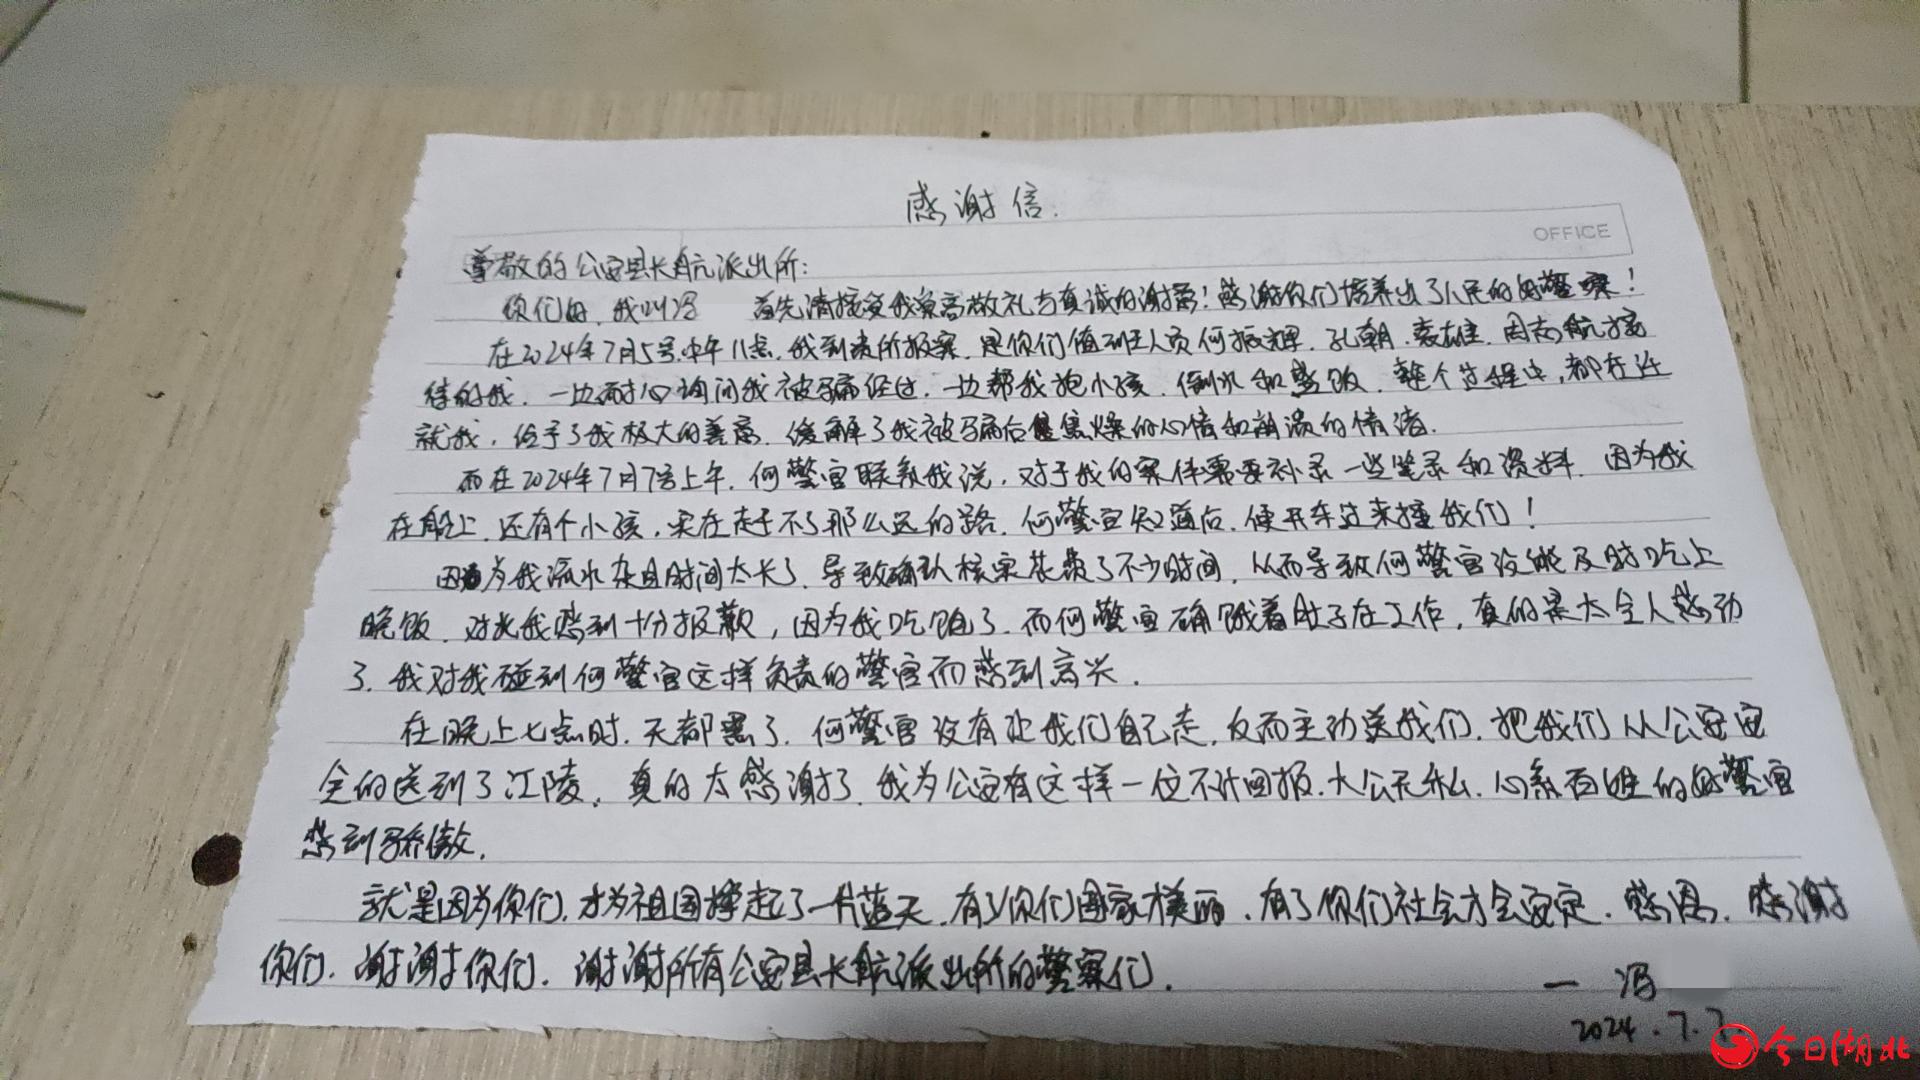 感谢信.
OFFICE
尊敬的公安县长航派出所:
你们好,我叫冯 首先请接受我崇高敬礼与真诚的谢意!感谢你们培养出了人民的好警察!
在2024年7月5号中午11点,我到贵所报案,是你们值班人员何振辉、孔朝、袁雄、周志航接
待的我,一边耐心询问我被骗经过,一边帮我抱小孩、倒水和盛饭,整个过程中,都在迁
就我,给予了我极大的善意,缓解了我被骗后焦燥的心情和崩溃的情绪.
而在2024年7月7号上午,何警官联系我说,对于我的案件需要补录一些笔录和资料,因为我
在船上,还有个小孩,实在走不了那么远的路,何警官知道后,便开车过来接我们!
因为我流水杂且时间太长了,导致确认核实花费了不少时间,从而导致何警官没能及时吃上
晚饭,对此我感到十分报歉,因为我吃饱了,而何警官确饿着肚子在工作,真的是太令人感动
了,我对我碰到何警官这样负责的警官而感到高兴.
在晚上七点时,天都黑了,何警官没有让我们自己走,反而主动送我们,把我们从公安安
全的送到了江陵,真的太感谢了,我为公安有这样一位不计回报、大公无私、心系百姓的好警官
感到骄傲.
就是因为你们,才为祖国撑起了一片蓝天,有了你们国家横丽,有了你们社会才会安定,感恩,感谢
你们,谢谢你们,谢谢所有公安县长航派出所的警察们.
一 冯
2024.7.7
今日湖北